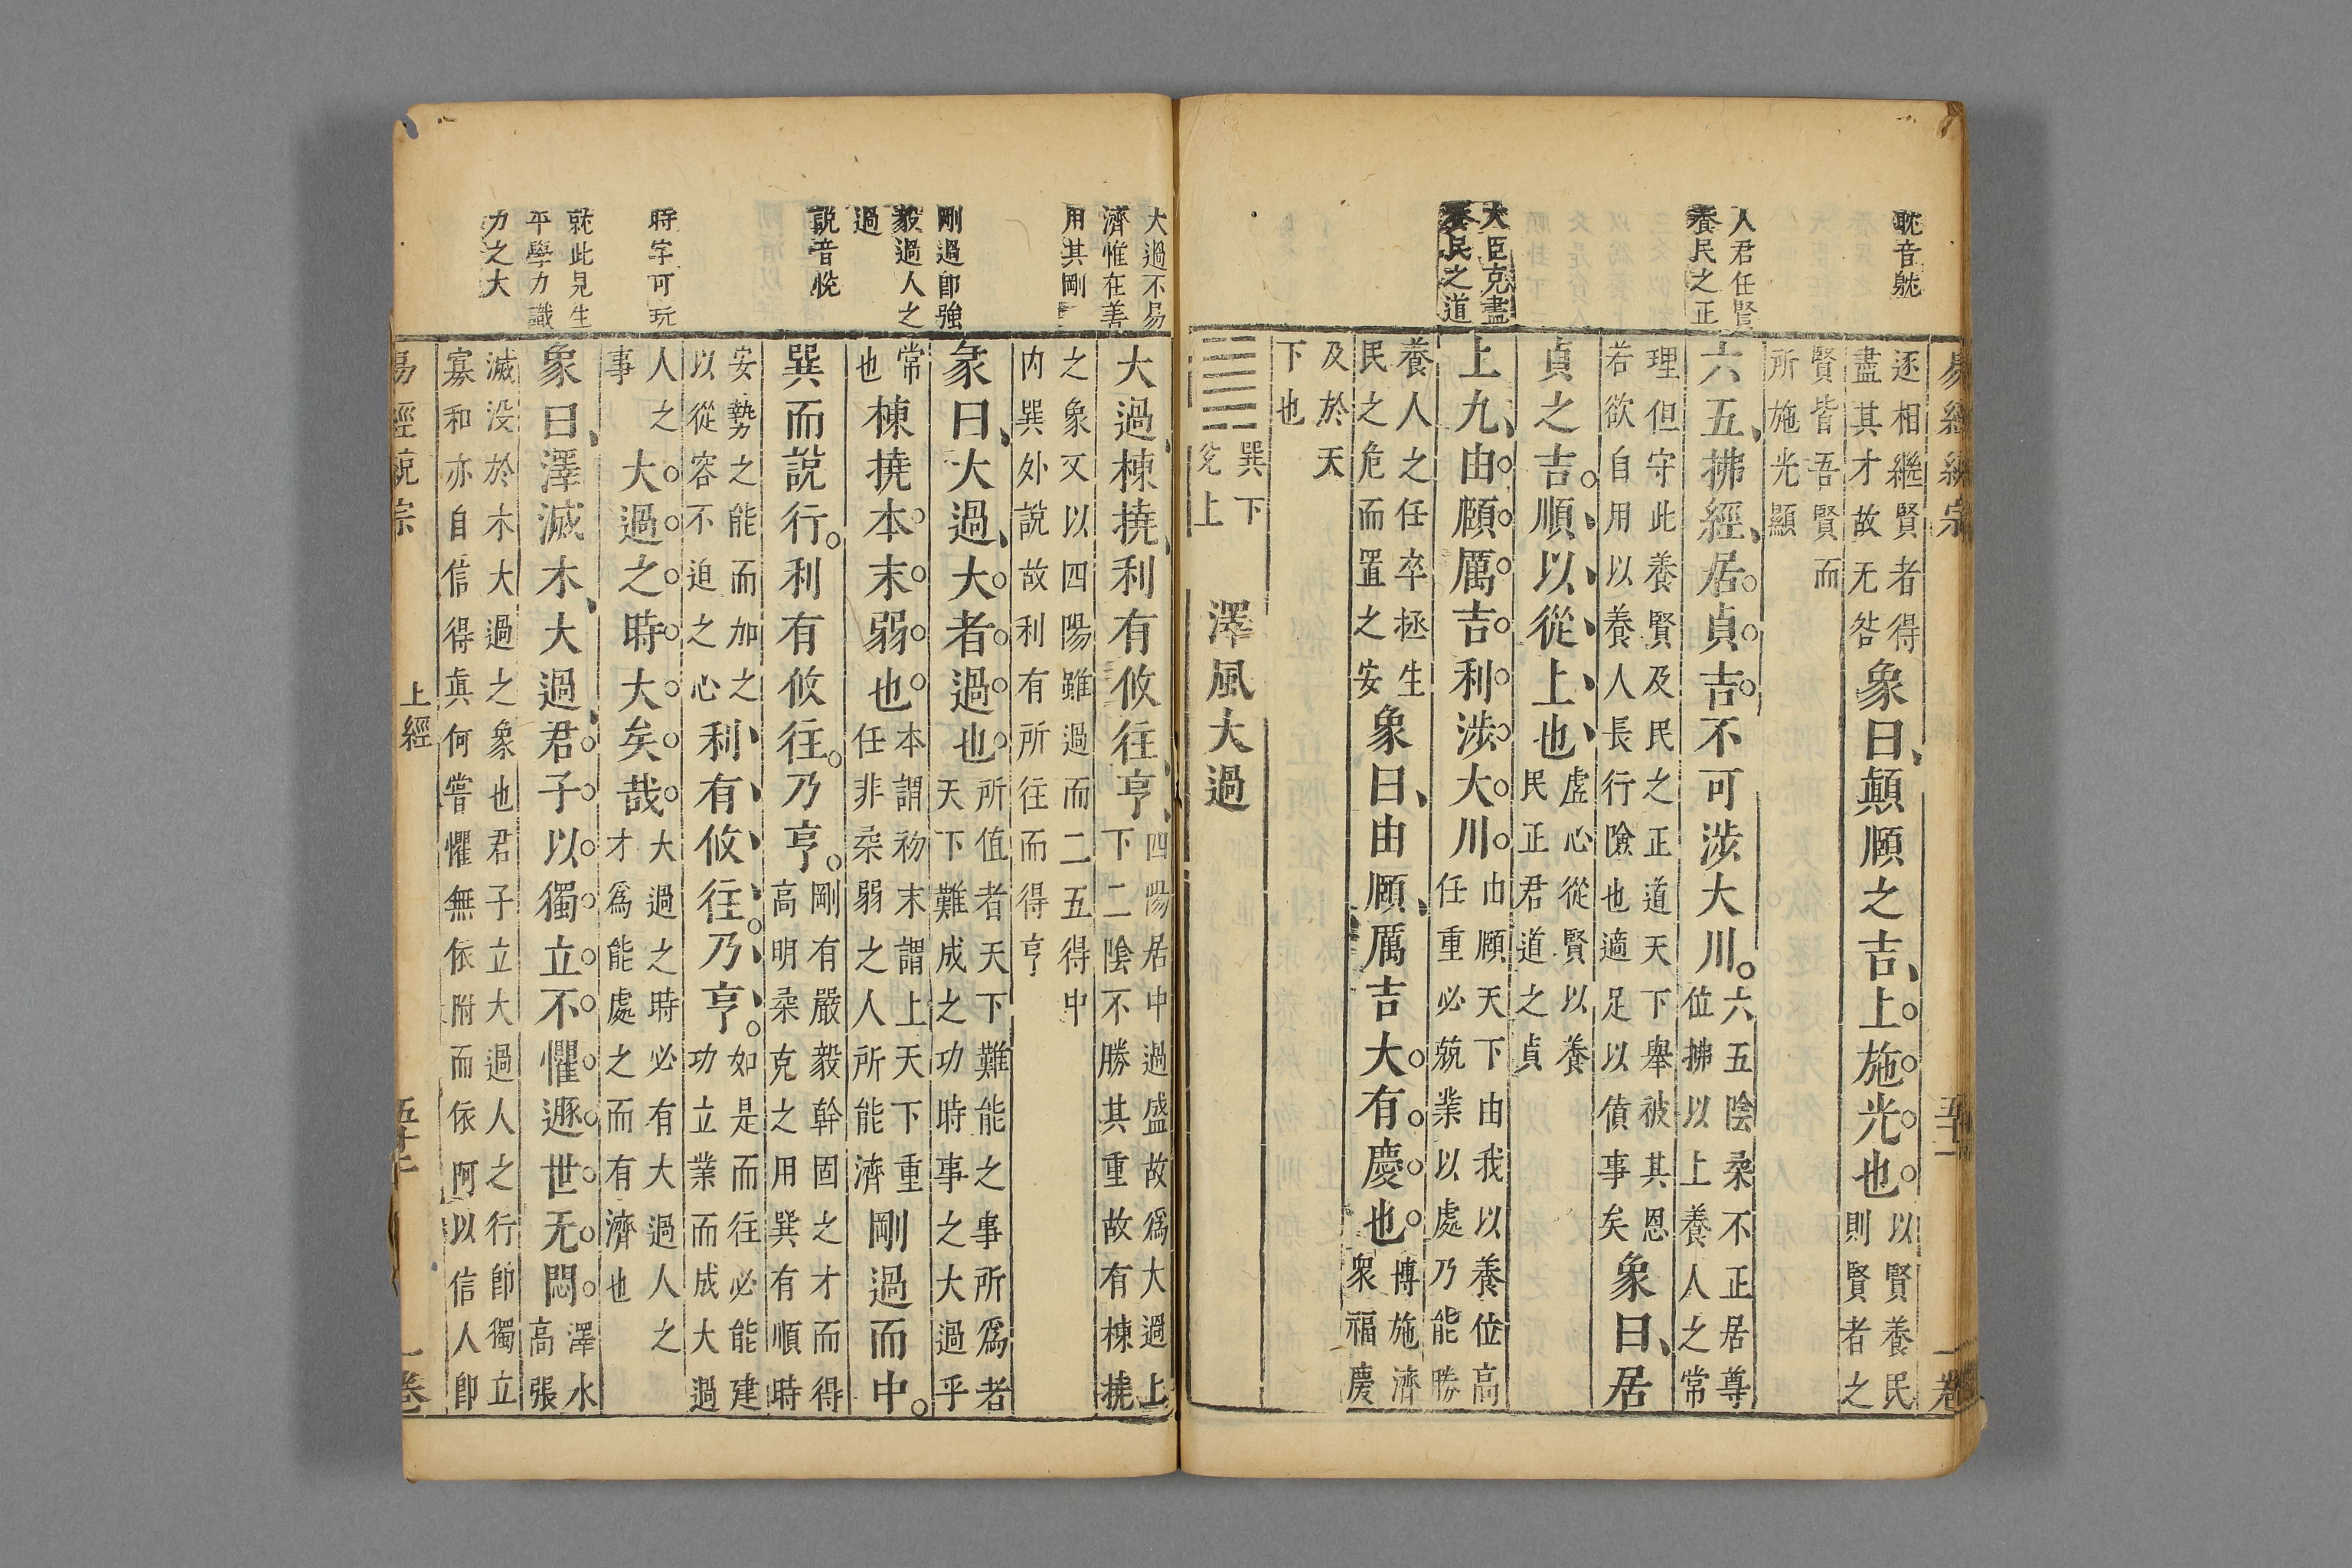 耽音躭
人君任賢
養民之正
大臣克盡
養民之道
逐相繼賢者得
盡其才故无咎
象曰、顛頤之吉、上施光也
以賢養民
則賢者之
賢皆吾賢而
所施光顯
六五、拂經、居貞吉不可涉大川。
六五陰柔不正居尊
位拂以上養人之常
理但守此養賢及民之正道天下舉被其恩
若欲自用以養人長行險也適足以僨事矣
象曰、居
貞之吉。順以從上也
虛心從賢以養
民正君道之貞
上九、由頤厲吉利涉大川
由頤天下由我以養位高
任重必兢業以處乃能勝
養人之任卒拯生
民之危而置之安
象曰、由頤、厲吉大有慶也
博施濟
衆福慶
及於天
下也
巽下
兌上
澤風大過
易經
一卷
大過不易
濟惟在善
用其剛
剛過即強
毅過人之
過
說音悅
時字可玩
就此見生
平學力識
力之大
大過、棟撓、利有攸往、亨、
四陽居中過盛故爲大過上
下二陰不勝其重故有棟撓
之象又以四陽雖過而二五得中
内巽外說故利有所往而得亨
彖曰、大過、大者過也
所值者天下難能之事所爲者
天下難成之功時事之大過乎
常
也
棟撓本末弱也
本謂初末謂上天下重
任非柔弱之人所能濟
剛過而中。
巽而說行。利有攸往。乃亨。
剛有嚴毅幹固之才而得
高明柔克之用巽有順時
安勢之能而加之
以從容不迫之心
利有攸往。乃亨。
如是而往必能建
功立業而成大過
人之
事
大過之時大矣哉
大過之時必有大過人之
才爲能處之而有濟也
象曰、澤滅木、大過、君子以獨立不懼遯世无悶
澤水
高張
滅没於木大過之象也君子立大過人之行即獨立
寡和亦自信得眞何嘗懼無依附而依阿以信人即
上經